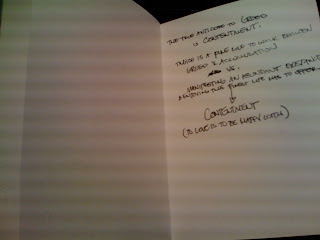 THE TRUE ANTIDOTE TO GREED
IS CONTENTMENT.
THERE IS A FINE LINE TO WALK BETWEEN
GREED & ACCUMULATION
VS.
MANIFESTING AN ABUNDANT
ENJOYING THE FINEST LIFE HAS TO OFFER.
CONTENTMENT
(TO LOVE IS TO BE HAPPY WITH)